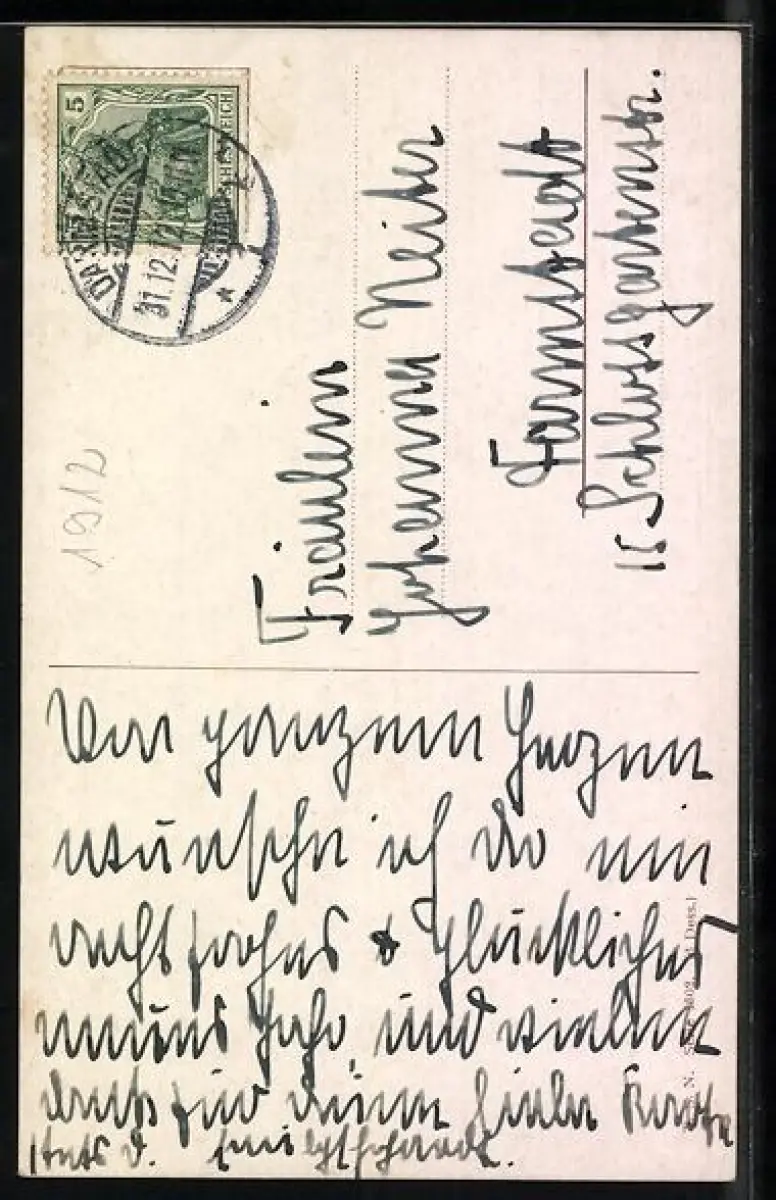 5
DEUTSCHES REICH
DARMSTADT
31.12.12
1912
Fräulein
Johanna Neiber
Darmstadt
Schlossgartenstr.
Von ganzem Herzen
wünsche ich Dir ein
recht frohes & glückliches
neues Jahr, und vielen
Dank für deine Karte
stets d.